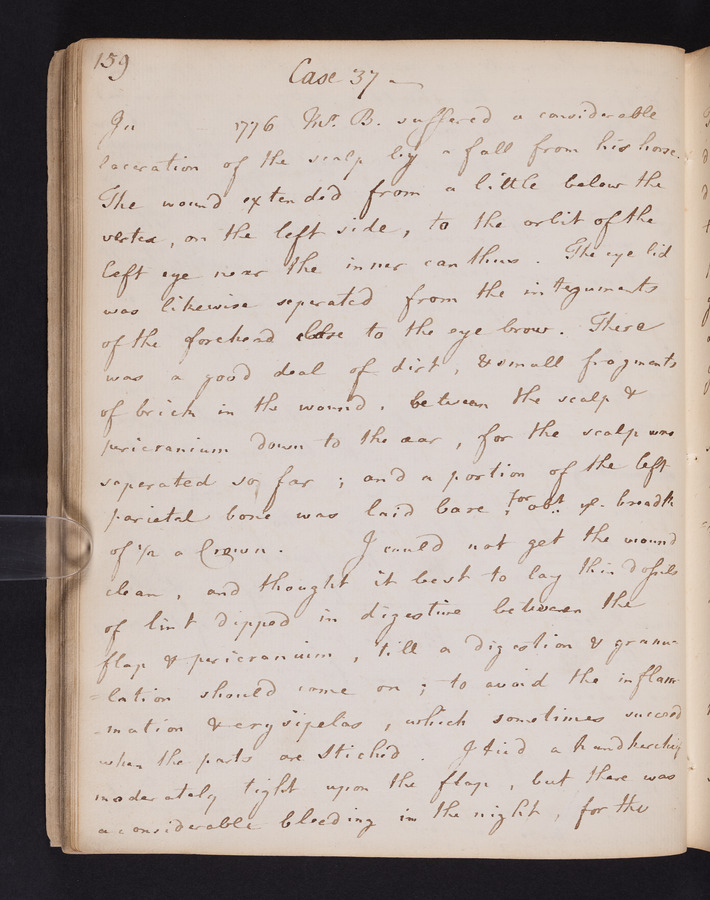 159
Case 37 —
In 1776 Mr. B. suffered a considerable
laceration of the scalp by a fall from his horse.
The wound extended from a little below the
vertex, on the left side, to the orbit of the
left eye near the inner canthus. The eye lid
was likewise seperated from the integuments
of the forehead close to the eye brow. There
was a good deal of dirt, & small fragments
of brick in the wound, between the scalp &
pericranium down to the ear, for the scalp was
seperated so far ; and a portion of the left
parietal bone was laid bare, for abt. ye. breadth
of 1/2 a Crown. I could not get the wound
clean, and thought it best to lay thin dossils
of lint dipped in digestive between the
flap & pericranium, till a digestion & granu-
=lation should come on ; to avoid the inflam-
=mation & erysipelas, which sometimes succeed
when the parts are stiched. I tied a handkerchief
moderately tight upon the flap, but there was
a considerable bleeding in the night, for the